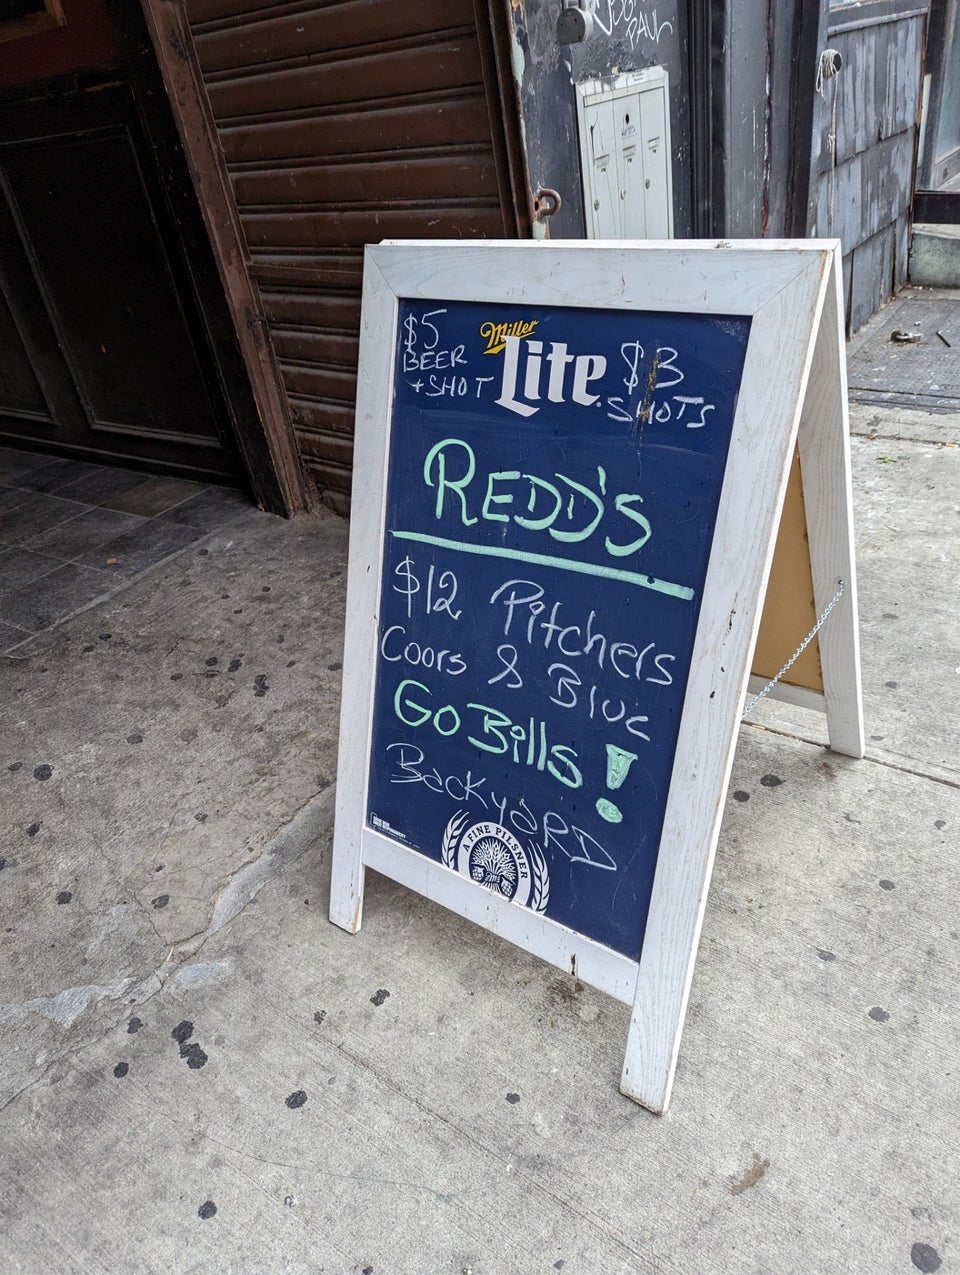 $5
BEER
+ SHOT
Miller
Lite
$3
SHOTS
REDD'S
$12 Pitchers
Coors & Blue
Go Bills!
BackyARD
A FINE PILSNER
PAUL